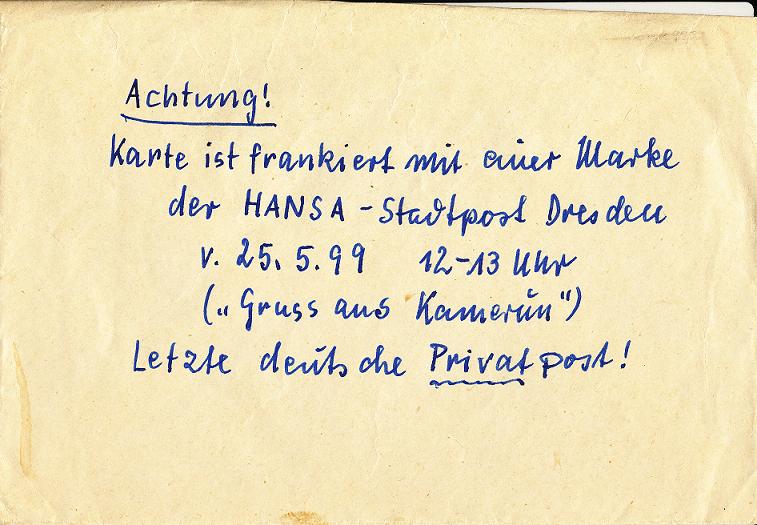 Achtung!
Karte ist frankiert mit einer Marke
der HANSA - Stadtpost Dresden
v. 25. 5. 99 12-13 Uhr
(„Gruss aus Kamerun")
Letzte deutsche Privatpost!